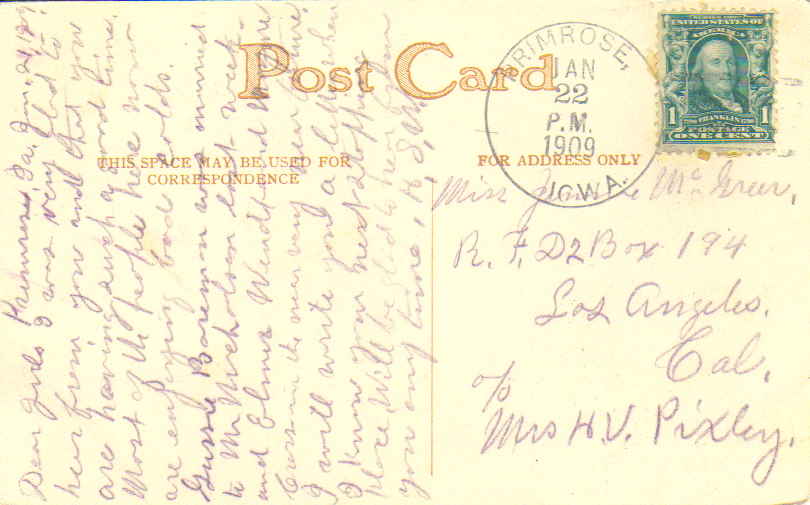 Post Card
THIS SPACE MAY BE USED FOR
CORRESPONDENCE
FOR ADDRESS ONLY
PRIMROSE,
JAN
22
P.M.
1909
IOWA.
UNITED STATES OF
AMERICA
1
FRANKLIN
POSTAGE
ONE CENT
1
Miss Mc Greer,
R. F. D 2 Box 194
Los Angeles.
Cal.
c/o
Mrs H. V. Pixley.
Primrose, Ia. Jan. 21, 1909
Dear Girls I was very glad to
hear from you and that you
are having such a good time.
Most of the people here now
are enjoying bad colds.
Gussie was married
to Mr Nicholson last week
and Elmer Wendt and
very
I will write you a letter when
I know your next stopping
place. Will be glad to hear from
you any time,